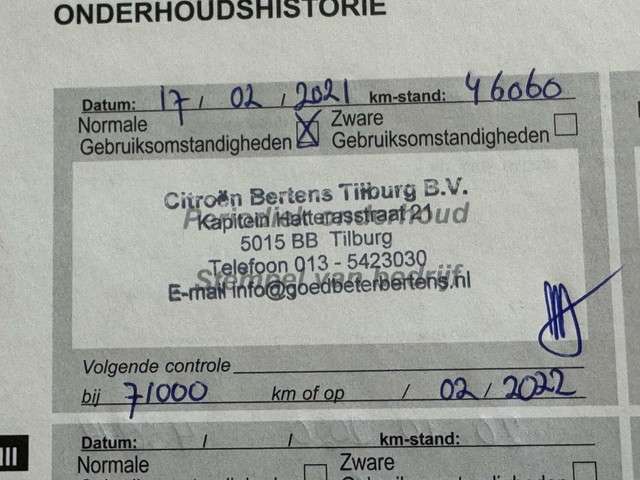 ONDERHOUDSHISTORIE
Datum: 17 / 02 / 2021 km-stand: 46060
Normale Gebruiksomstandigheden ☒ Zware Gebruiksomstandigheden ☐
Citroën Bertens Tilburg B.V.
Periodiek onderhoud
Kapitein Hatterasstraat 21
5015 BB Tilburg
Telefoon 013 - 5423030
Stempel van bedrijf
E-mail info@goedbeterbertens.nl
Volgende controle
bij 71000 km of op / 02 / 2022
Datum: / / km-stand:
Normale Zware
Gebruiksomstandigheden Gebruiksomstandigheden
III